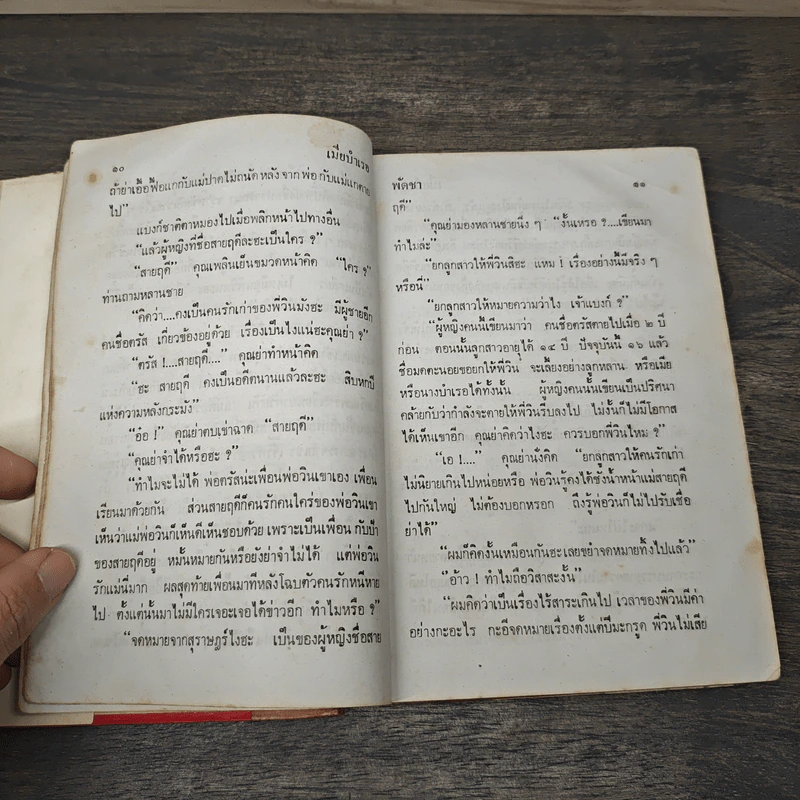 ๑๐
เมียบำเรอ
ถ้าย่าเอื้อเฟื้อแกกับแม่ปาดไม่ถนัด หลังจากพ่อกับแม่แกตาย
ไป”
แบงก์ชาติตาหมองไปเมื่อพลิกหน้าไปทางอื่น
“แล้วผู้หญิงที่ชื่อสายฤดีละฮะเป็นใคร ?”
“สายฤดี” คุณเพลินเย็นขมวดหน้าคิด “ใคร ?”
ท่านถามหลานชาย
“คิดว่า....คงเป็นคนรักเก่าของพี่วินมังฮะ มีผู้ชายอีก
คนชื่อตรัส เกี่ยวข้องอยู่ด้วย เรื่องเป็นไงแน่ฮะคุณย่า ?”
“ตรัส !....สายฤดี....” คุณย่าทำหน้าคิด
“ฮะ สายฤดี คงเป็นอดีตนานแล้วละฮะ สิบหกปี
แห่งความหลังกระมัง”
“อ๋อ !” คุณย่าตบเข่าฉาด “สายฤดี”
“คุณย่าจำได้หรือฮะ ?”
“ทำไมจะไม่ได้ พ่อตรัสน่ะเพื่อนพ่อวินเขาเอง เพื่อน
เรียนมาด้วยกัน ส่วนสายฤดีก็คนรักคนใคร่ของพ่อวินเขา
เห็นว่าแม่พ่อวินก็เห็นดีเห็นชอบด้วย เพราะเป็นเพื่อนกับป้า
ของสายฤดีอยู่ หมั้นหมายกันหรือยังย่าจำไม่ได้ แต่พ่อวิน
รักแม่นี่มาก ผลสุดท้ายเพื่อนมาทีหลังโฉบตัวคนรักหนีหาย
ไป ตั้งแต่นั้นมาไม่มีใครเจอะเจอได้ข่าวอีก ทำไมหรือ ?”
“จดหมายจากสุราษฎร์ไงฮะ เป็นของผู้หญิงชื่อสาย
พัดชา
๑๑
ฤดี”
“คุณย่ามองหลานชายนิ่ง ๆ “งั้นเหรอ ?....เขียนมา
ทำไมล่ะ”
“ยกลูกสาวให้พี่วินสิฮะ แหม ! เรื่องอย่างนี้มีจริง ๆ
หรือนี่”
“ยกลูกสาวให้หมายความว่าไง เจ้าแบงก์ ?”
“ผู้หญิงคนนี้เขียนมาว่า คนชื่อตรัสตายไปเมื่อ ๒ ปี
ก่อน ตอนนั้นลูกสาวอายุได้ ๑๔ ปี ปัจจุบันนี้ ๑๖ แล้ว
ชื่อมดตะนอยขอยกให้พี่วิน จะเลี้ยงอย่างลูกหลาน หรือเมีย
หรือนางบำเรอได้ทั้งนั้น ผู้หญิงคนนั้นเขียนเป็นปริศนา
คล้ายกับว่ากำลังจะตายให้พี่วินรีบลงไป ไม่งั้นก็ไม่มีโอกาส
ได้เห็นเขาอีก คุณย่าคิดว่าไงฮะ ควรบอกพี่วินไหม ?”
“เอ !....” คุณย่านั่งคิด “ยกลูกสาวให้คนรักเก่า
ไม่นิยายเกินไปหน่อยหรือ พ่อวินรู้คงได้ชังน้ำหน้าแม่สายฤดี
ไปกันใหญ่ ไม่ต้องบอกหรอก ถึงรู้พ่อวินก็ไม่ไปรับเชื่อ
ย่าได้”
“ผมก็คิดงั้นเหมือนกันฮะเลยขยำจดหมายทิ้งไปแล้ว”
“อ้าว ! ทำไมถือวิสาสะงั้น”
“ผมคิดว่าเป็นเรื่องไร้สาระเกินไป เวลาของพี่วินมีค่า
อย่างกะอะไร กะอีจดหมายเรื่องตั้งแต่ปีมะกรูด พี่วินไม่เสีย